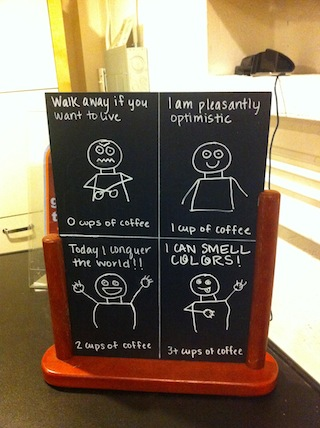 Walk away if you
want to live
0 cups of coffee
I am pleasantly
optimistic
1 cup of coffee
Today I conquer
the world!!
2 cups of coffee
I CAN SMELL
COLORS!
3+ cups of coffee